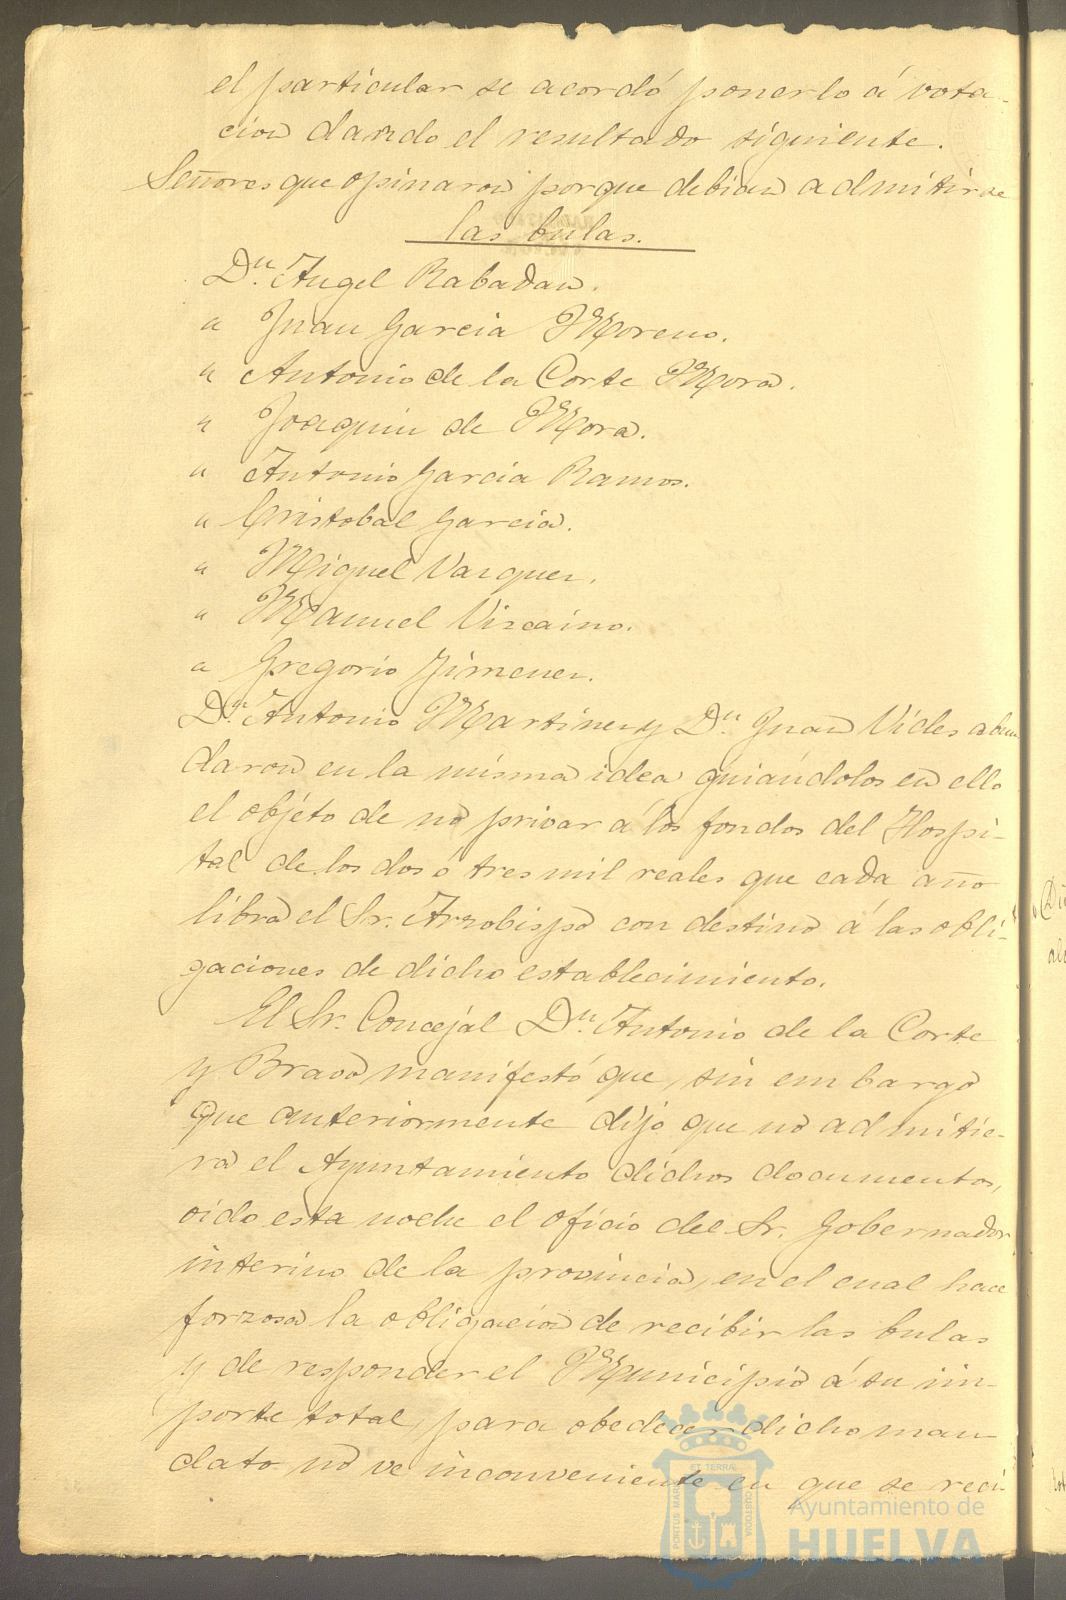 el particular se acordó ponerlo á vota-
cion dando el resultado siguiente.
Señores que opinaron porque debian admitirse
las bulas.
Dn. Angel Rabadan.
" Juan Garcia Moreno.
" Antonio de la Corte Mora.
" Joaquin de Mora.
" Antonio Garcia Ramos.
" Cristobal Garcia.
" Miguel Vazquez.
" Manuel Vizcaino.
" Gregorio Jimenez.
Dn. Antonio Martinez y Dn. Juan Vides abun
daron en la misma idea guiándolos en ello
el objéto de no privar á los fondos del Hospi-
tal de los dos ó tres mil reales que cada año
libra el Sr. Arzobispo con destino á las obli-
gaciones de dicho establecimiento.
El Sr. Concejal Dn. Antonio de la Corte
y Bravo manifestó que, sin embargo
que anteriormente dijo que no admitie-
ra el Ayuntamiento dichos documentos,
oido esta noche el oficio del Sr. Gobernador
interino de la provincia, en el cual hace
forzosa la obligacion de recibir las bulas
y de responder el Municipio á su im-
porte total, para obedecer dicho man-
dato no ve inconveniente en que se reci-
PORTUS MARIS ET TERRAE CUSTODIA
Ayuntamiento de
HUELVA